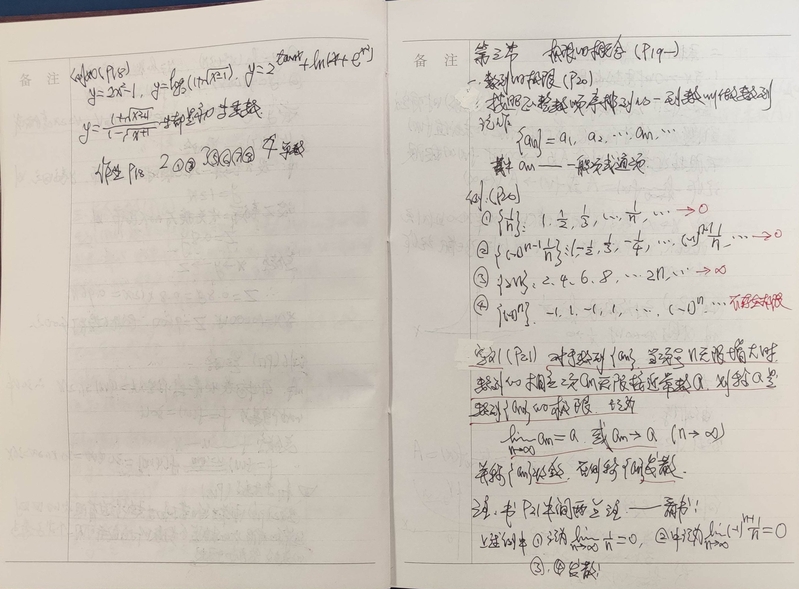 备 注
例(P18)
y=2x²-1, y=log₃(1+√(x²-1)). y=2^tanx+ln(2x+e^x²)
y=(1+√(x²+1))/(1-√(x²+1)) 都是初等函数
作业 P18 2 ①③ 3⑤⑥⑦⑧ 4
备 注
第三节 极限的概念 (P19-)
一. 数列的极限 (P20)
按照正整数顺序排列的一列数叫做数列
记作
{an}=a₁, a₂, … an, …
其中 an —— 一般项或通项
例: (P20)
① {1/n}: 1, 1/2, 1/3, …, 1/n, … →0
② {(-1)^(n-1) 1/n}: 1, -1/2, 1/3, -1/4, …, (-1)^(n-1) 1/n, … →0
③ {2n}, 2, 4, 6, 8, … 2n, … →∞
④ {(-1)^n}. -1, 1, -1, 1, …, (-1)^n … 不存在极限
定义1 (P21) 对于数列{an} 当序号n无限增大时
数列的相应项an无限接近常数a. 则称a是
数列{an}的极限. 记为
lim n→∞ an=a 或 an→a (n→∞)
并称{an}收敛. 否则称{an}发散.
注. 书P21中间两点注 —— 看书!
上述例中 ①记为 lim n→∞ 1/n=0, ②中记为 lim n→∞ (-1)^(n-1) 1/n=0
③, ④发散!